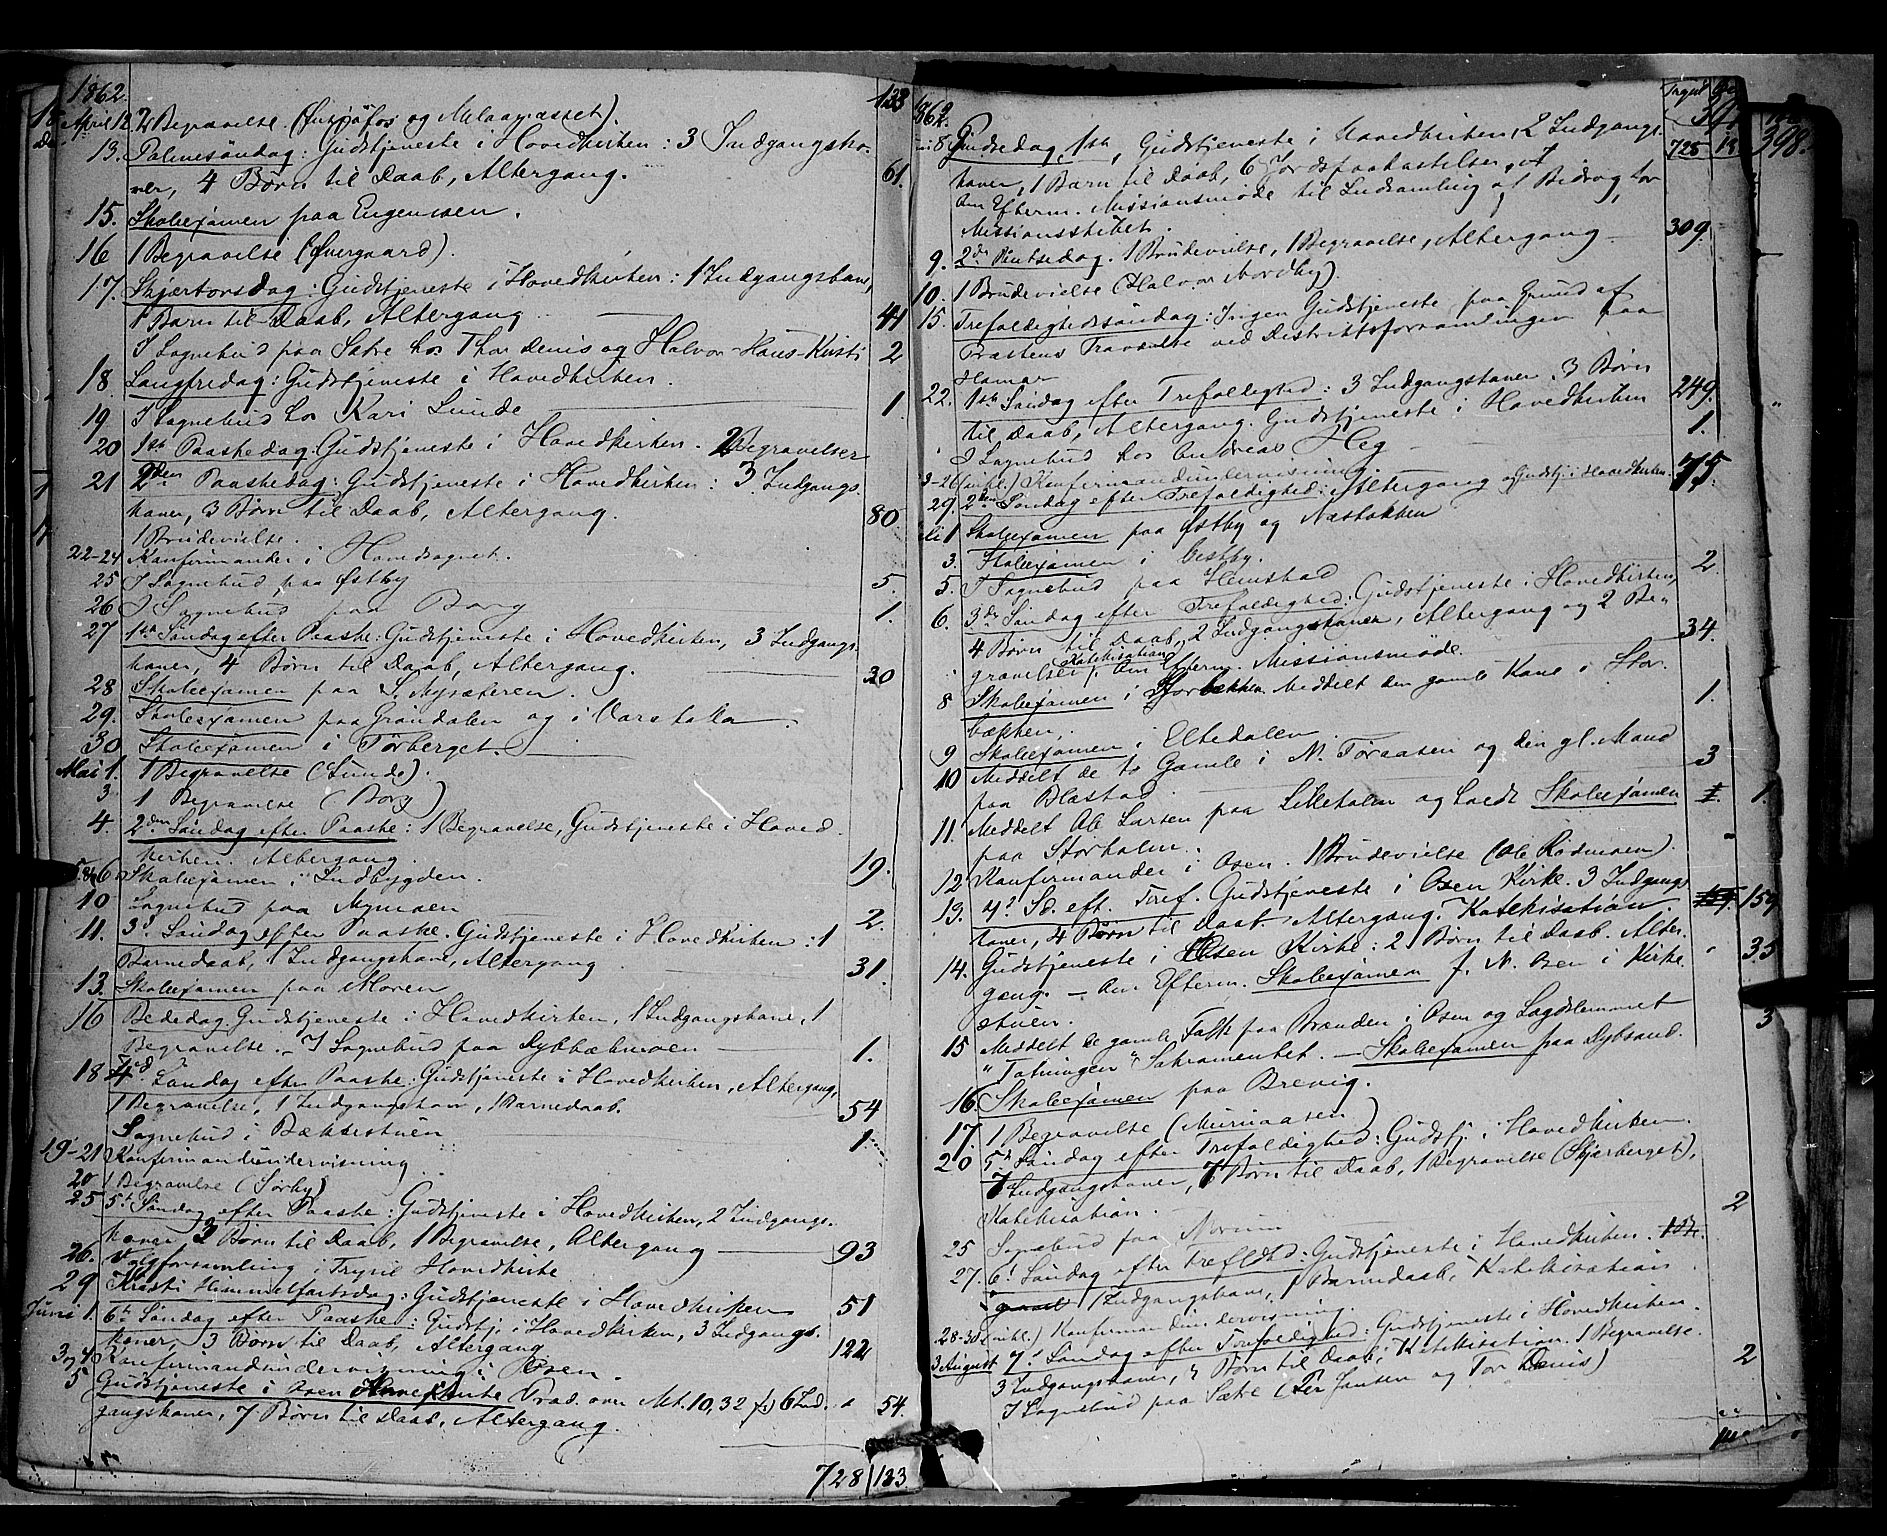 1862.
133
April 12. 2 Begravelse ( og Melaanæsset).
13. Palmesøndag: Gudstjeneste i Hovedkirken: 3 Indgangsko-
ner, 4 Børn til Daab, Altergang. 61.
15. Skoleexamen paa Engemoen.
16 1 Begravelse (Øvergaard).
17. Skjærtorsdag: Gudstjeneste i Hovedkirken: 1 Indgangskone,
1 Barn til Daab, Altergang 41
I Sognebud paa Sætre hos Thor Denis og Halvor Hans-Kristi 2
18 Langfredag: Gudstjeneste i Hovedkirken.
19 I Sognebud hos Kari Lunde 1.
20 1ste Paaskedag. Gudstjeneste i Hovedkirken. 2 Begravelser
21 2den Paaskedag: Gudstjeneste i Hovedkirken: 3 Indgangs-
koner, 3 Børn til Daab, Altergang. 80.
1 Brudevielse.
22-24 Konfirmander i Hovedsognet.
25 I Sognebud paa Østby 5.
26 I Sognebud paa Borg 1.
27 1ste Søndag efter Paaske: Gudstjeneste i Hovedkirken, 3 Indgangs-
koner, 4 Børn til Daab, Altergang. 30
28 Skoleexamen paa S. Nysæteren.
29. Skoleexamen paa Grøndalen og i Varaholla
30 Skoleexamen i Tørberget.
Mai 1. 1 Begravelse (Lunde).
3 1 Begravelse (Borg)
4. 2den Søndag efter Paaske: 1 Begravelse, Gudstjeneste i Hoved-
kirken. Altergang. 19.
5 & 6 Skoleexamen i Indbygden.
10 Sognebud paa Nymoen 2.
11. 3d. Søndag efter Paaske. Gudstjeneste i Hovedkirken: 1
Barnedaab, 1 Indgangskone, Altergang 31.
13. Skoleexamen paa Moren
16 Bededag. Gudstjeneste i Hovedkirken, 1 Indgangskone, 1
Begravelse. - I Sognebud paa Dybbækmoen 1.
18 4d. Søndag efter Paaske: Gudstjeneste i Hovedkirken, Altergang,
1 Begravelse, 1 Indgangskone, 1 Barnedaab. 54
Sognebud i Bækkestuen 1
19-21 Konfirmandundervisning
20 1 Begravelse (Sørby)
25 5te Søndag efter Paaske: Gudstjeneste i Hovedkirken, 2 Indgangs-
koner 3 Børn til Daab, 1 Begravelse, Altergang 93
26. Valgforsamling i Trysil Hovedkirke
29 Kristi Himmelfartsdag: Gudstjeneste i Hovedkirken 51
Juni 1. 6te Søndag efter Paaske: Gudstj. i Hovedkirken, 3 Indgangs-
koner, 3 Børn til Daab, Altergang 122
3 & 4 Konfirmandundervisning i Osen.
5 Gudstjeneste i Osen Kirke (Præd. over Mt. 10, 32 f.) 6 Ind-
gangskoner, 7 Børn til Daab, Altergang. 54.
728 | 133
1862.
Trysil
728 398.
8 Pindsedag 1ste, Gudstjeneste i Hovedkirken, 2 Indgangs-
koner, 1 Barn til Daab, 6 Jordspaakastelser,
Om Efterm. Missionsmøde til Indsamling af Bidrag for
Missionsskibet. 309.
9. 2den Pintsedag. 1 Brudevielse, 1 Begravelse, Altergang
10. 1 Brudevielse (Halvor Nordby).
15. Trefoldighedssøndag: Ingen Gudstjeneste paa Grund af
Præstens Fraværelse ved Distriktsforsamlingen paa
Hamar
22. 1ste Søndag efter Trefoldighed: 3 Indgangskoner 3 Børn
til Daab, Altergang. Gudstjeneste i Hovedkirken 249.
I Sognebud hos Andreas Heg 1.
(inkl.) Konfirmandundervisning.
29. 2den Søndag efter Trefoldighed: Altergang og Gudstj. i Hovedkirken. 75.
1 Skoleexamen paa Østby og Næstebken
3. Skoleexamen i Vestby.
5. I Sognebud paa Hemstad 2
6. 3die Søndag efter Trefoldighed: Gudstjeneste i Hovedkirken,
4 Børn til Daab, 2 Indgangskoner, Altergang og 2 Be-
gravelser, Katekisation. Om Efterm. Missionsmøde. 34.
8 Skoleexamen i Storbækken. Meddelt den gamle Kone i Stor-
bækken. 1.
9 Skoleexamen i Eltedalen
10 Meddelt de to Gamle i N. Foraasen og den gl. Mand
paa Blæstad 3
11. Meddelt Ole Larsen paa Lilleholm og holdt Skoleexamen
paa Storholm. 1.
12 Konfirmander i Osen. 1 Brudevielse (Ole Rødmoen).
13. 4de Sd. eft. Tref. Gudstjeneste i Osen Kirke. 3 Indgangs-
koner, 4 Børn til Daab. Altergang. Katekisation 159
14. Gudstjeneste i Osen Kirke: 2 Børn til Daab. Alter-
gang. - Om Efterm. Skoleexamen f. N. Osen i Kirke-
stuen. 35
15 Meddelt de gamle Folk paa Brænden i Osen og Lægdslemmet
"Totningen" Sakramentet. - Skoleexamen paa Dybsand. 3
16. Skoleexamen paa Brevig.
17. 1 Begravelse (Murnaasen)
20 5te Søndag efter Trefoldighed: Gudstj. i Hovedkirken.
7 Indgangskoner, 7 Børn til Daab, 1 Begravelse (Skjærberget),
Katekisation.
25 Sognebud paa Norum 2
27. 6te Søndag efter Trefldhd: Gudstjeneste i Hovedkirken.
1 Indgangskone, 1 Barnedaab, Katekisation
28-30 (inkl.) Konfirmandundervisning.
3 August 7de Søndag efter Trefoldighed: Gudstjeneste i Hovedkirken.
3 Indgangskoner, 4 Børn til Daab, Katekisation. 1 Begravelse.
I Sognebud paa Sætre (Per Jansen og Tor Denis) 2